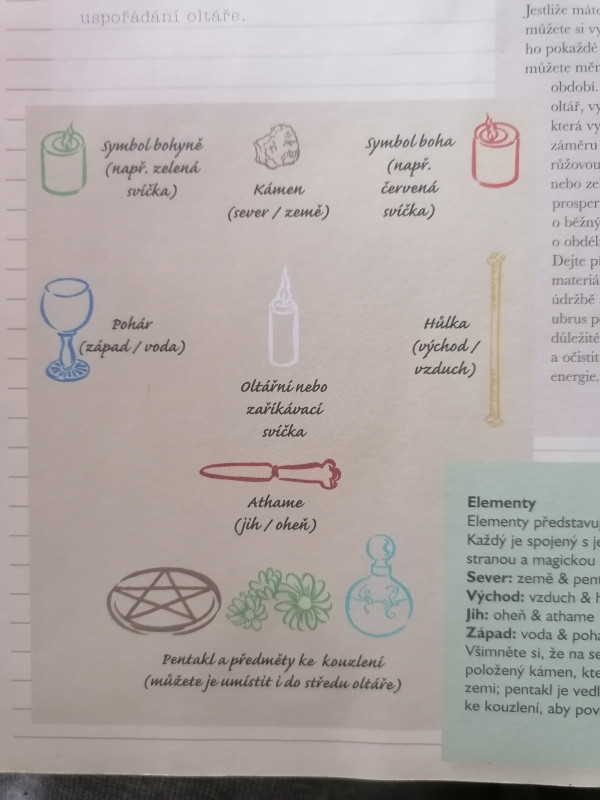 uspořádání oltáře.
Symbol bohyně
(např. zelená
svíčka)
Kámen
(sever / země)
Symbol boha
(např.
červená
svíčka)
Pohár
(západ / voda)
Oltářní nebo
zaříkávací
svíčka
Hůlka
(východ /
vzduch)
Athame
(jih / oheň)
Pentakl a předměty ke kouzlení
(můžete je umístit i do středu oltáře)
Jestliže
můžete si
ho pokaždé
můžete
období.
oltář,
která
záměru
růžovou
nebo
o běžný
Dejte
údržbě
ubrus
důležité
a očistit
energie.
Elementy
Elementy
Každý je spojený s
stranou a magickou
Sever: země &
Východ: vzduch &
Jih: oheň & athame
Západ: voda &
Všimněte si, že na
položený kámen,
zemi; pentakl je
ke kouzlení, aby